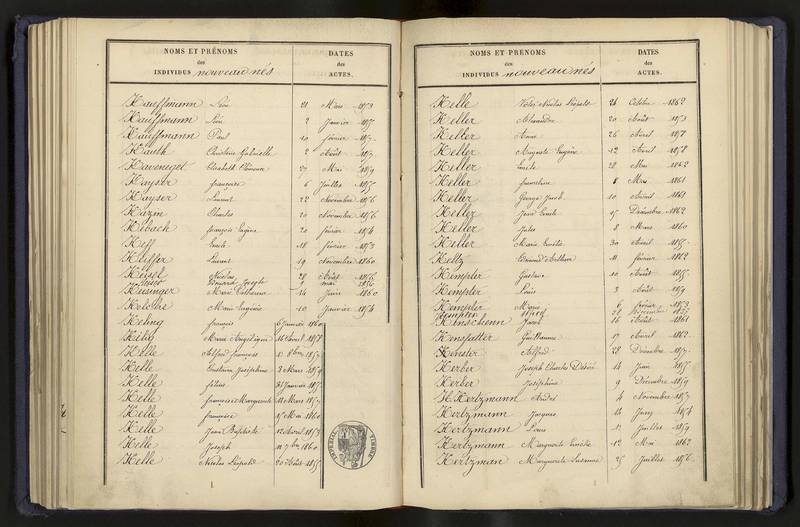 NOMS ET PRÉNOMS
des
INDIVIDUS nouveau nés
DATES
des
ACTES.
Kauffmann Léon 21 Mars 1853
Kauffmann 2 Janvier
Kauffmann Paul 10 février
Kauth Christine Gabrielle 2 Août
Elisabeth Eléonore 27 Mai 1859
Kayser françoise 6 Juillet 1855
Kayser Laurent 22 Novembre 1856
Kazm Charles 20 Novembre 1856
Kebach françois Eugène 20 février 1854
Keff Emile 18 février 1853
Keiffer Laurent 19 Novembre 1860
Keisel Nicolas 28 Août 1856
Edouard Joseph 9 mai 1856
Keisinger Marie Catherine 14 Juin 1860
Marie Eugénie 10 Janvier 1854
Keling françois 6 Janvier 1860
Kelig Marie Angélique 16 Avril 1858
Kelle Alfred françois
Kelle Joséphine 3 Mars 1859
Kelle Julien 31 Janvier
Kelle françoise Marguerite 11 Mars
Kelle françoise 15 Mai 1860
Kelle Jean Baptiste 12 Avril 1853
Kelle Joseph 11 7bre 1860
Kelle Nicolas Léopold 20 Août 1855
IMPÉRIAL TIMBRE
NOMS ET PRENOMS
des
INDIVIDUS nouveau nés
DATES
des
ACTES.
Kelle Victor Nicolas Léopold 21 Octobre 1862
Keller Alexandre 20 Août 1853
Keller Anne 26 Avril
Keller Auguste Eugène 12 Avril 1858
Keller Emile 28 Mai 1862
Keller 8 Mars 1861
Keller George Jacob 10 Avril 1861
Keller Jean Emile 15 Décembre 1862
Keller Jules 8 Mars 1860
Keller Marie Emilie 30 Avril 1855
Keltz Edmond Arthur 11 février 1862
Kempter Gustave 10 Août 1855
Kempter Louis 3 Août 1859
Kempter Marie 6 février 1853
Kempter
Kenschenn Jacob 16 Août 1861
Kenspalter Guillaume 17 Avril 1862
Kenster Alfred 28 Décembre
Kerber Joseph Charles Désiré 14 Juin 1855
Kerber Joséphine 9 Décembre 1859
Kertzmann André 4 Novembre
Kertzmann Jacques 14 1854
Kertzmann Louis 17 Juillet 1859
Kertzmann Marguerite Emilie 12 Mai 1862
Kertzman Marguerite Suzanne 25 Juillet 1856